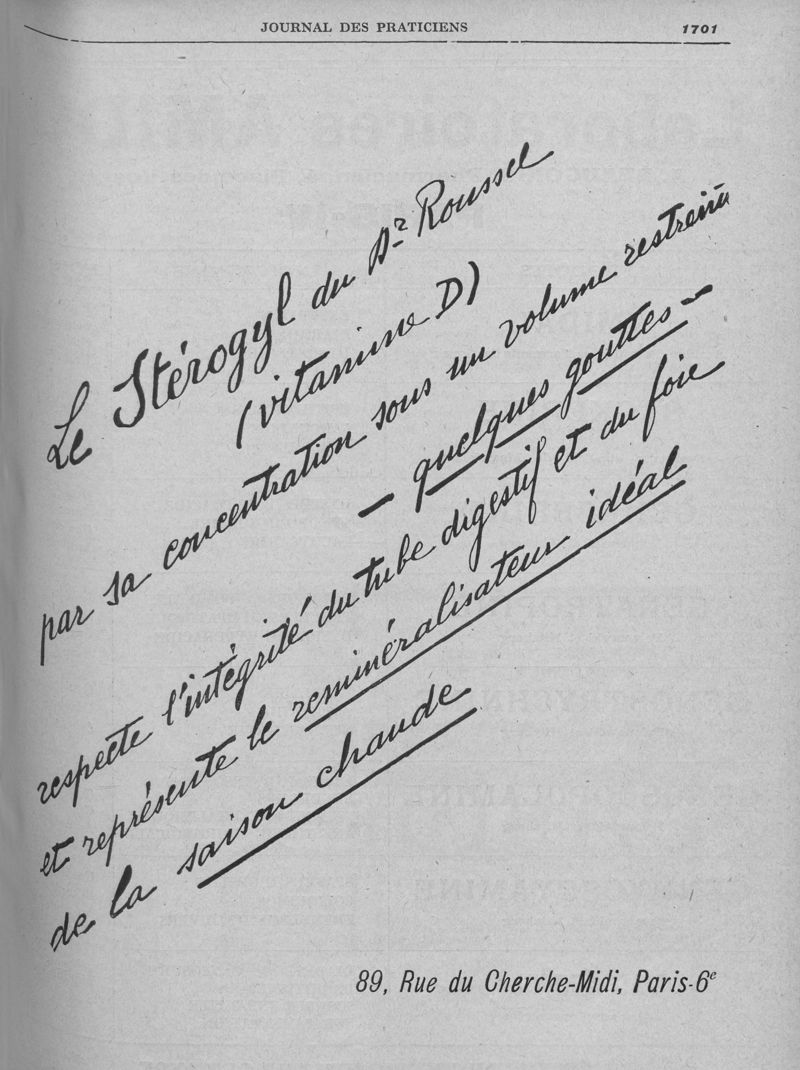 JOURNAL DES PRATICIENS 1701
Le Stérogyl du Dr Roussel
(vitamine D)
par sa concentration sous un volume restreint
— quelques gouttes —
respecte l'intégrité du tube digestif et du foie
et représente le reminéralisateur idéal
de la saison chaude
89, Rue du Cherche-Midi, Paris-6e